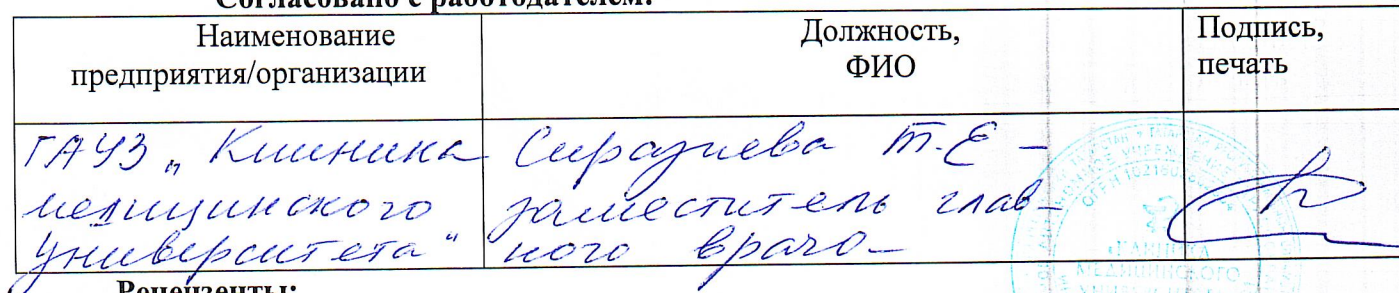 Согласовано с работодателем:
Наименование предприятия/организации
Должность, ФИО
Подпись, печать
ГАУЗ „Клиника
медицинского
университета"
Сиразиева Т.Е –
заместитель глав-
ного врача
ОГРН
«КЛИНИКА
МЕДИЦИНСКОГО
Рецензенты: